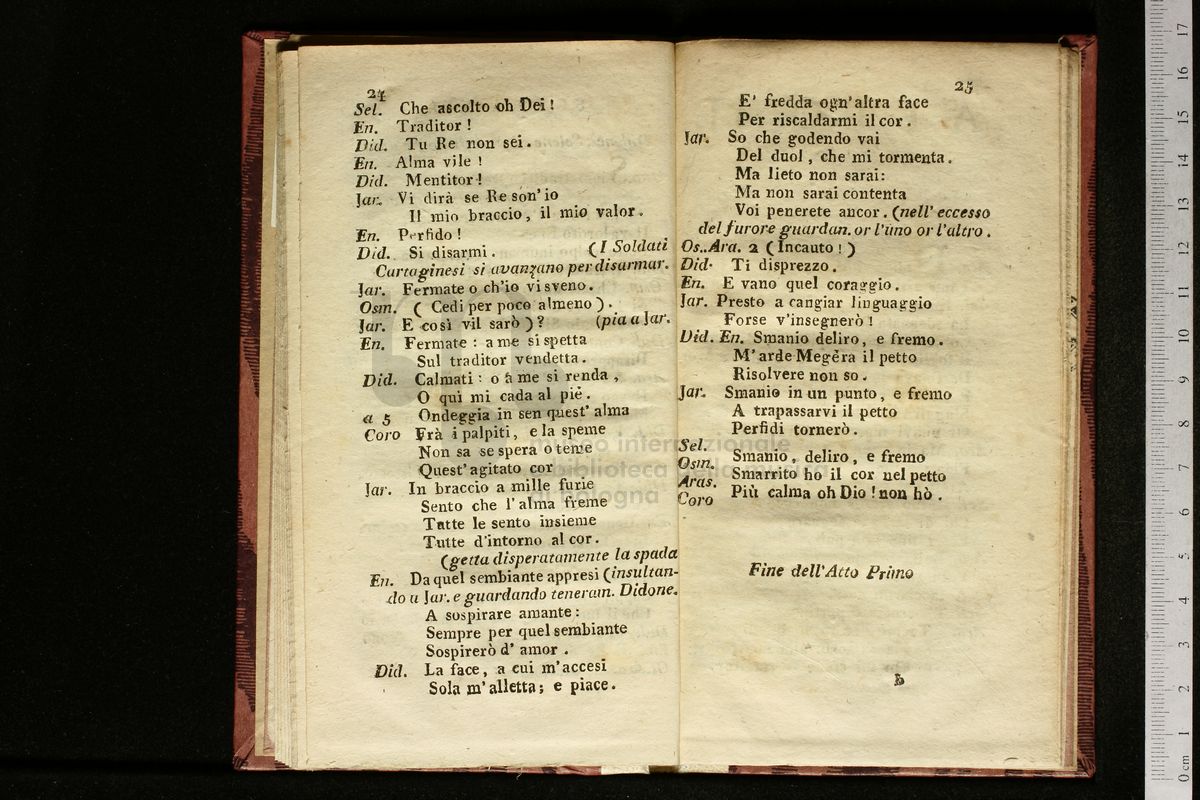 24
Sel. Che ascolto oh Dei!
En. Traditor!
Did. Tu Re non sei.
En. Alma vile!
Did. Mentitor!
Jar. Vi dirà se Re son' io
Il mio braccio, il mio valor.
En. Perfido!
Did. Si disarmi. (I Soldati
Cartaginesi si avanzano per disarmar.
Jar. Fermate o ch'io vi sveno.
Osm. (Cedi per poco almeno).
Jar. E così vil sarò)? (pia a Jar.
En. Fermate: a me si spetta
Sul traditor vendetta.
Did. Calmati: o a me si renda,
O qui mi cada al piè.
a 5 Ondeggia in sen quest' alma
Coro Frà i palpiti, e la speme
Non sa se spera o teme
Quest' agitato cor
Jar. In braccio a mille furie
Sento che l'alma freme
Tutte le sento insieme
Tutte d'intorno al cor.
(getta disperatamente la spada
En. Da quel sembiante appresi (insultan-
do a Jar. e guardando teneram. Didone.
A sospirare amante:
Sempre per quel sembiante
Sospirerò d' amor.
Did. La face, a cui m'accesi
Sola m'alletta; e piace.
25
E' fredda ogn'altra face
Per riscaldarmi il cor.
Jar. So che godendo vai
Del duol, che mi tormenta.
Ma lieto non sarai:
Ma non sarai contenta
Voi penerete ancor. (nell' eccesso
del furore guardan. or l'uno or l'altro.
Os..Ara. 2 (Incauto!)
Did. Ti disprezzo.
En. E vano quel coraggio.
Jar. Presto a cangiar linguaggio
Forse v'insegnerò!
Did. En. Smanio deliro, e fremo.
M'arde Megera il petto
Risolvere non so.
Jar. Smanio in un punto, e fremo
A trapassarvi il petto
Perfidi tornerò.
Sel.
Osm. Smanio, deliro, e fremo
Aras. Smarrito ho il cor nel petto
Coro Più calma oh Dio! non hò.
Fine dell'Atto Primo
museo internazionale
e biblioteca della musica
di bologna
0 cm 1 2 3 4 5 6 7 8 9 10 11 12 13 14 15 16 17